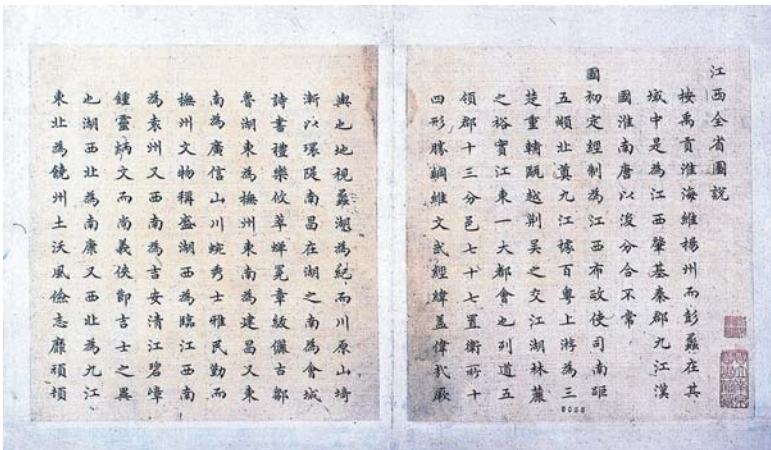 江西全省圖說
按禹貢淮海維揚州而彭蠡在其
域中是為江西肇基秦郡九江漢
國淮南唐以後分合不常
國初定經制為江西布政使司南距
五嶺北奠九江據百粵上游為三
楚重輔甌越荊吳之交江湖林麓
之裕實江東一大都會也列道五
領郡十三分邑七十七置衛所十
四形勝綱維文武經緯蓋偉哉厥
輿也地視蠡湖為紀而川原山埼
漸以環隄南昌在湖之南為會城
詩書禮樂攸萃蟬冕章紱儷古鄒
魯湖東為撫州東南為建昌又東
南為廣信山川蜿秀士雅民勤而
撫州文物稱盛湖西為臨江西南
為袁州又西南為吉安清江碧嶂
鍾靈炳文而尚義俠節吉士之異
也湖西北為南康又西北為九江
東北為饒州土沃風儉志靡頑